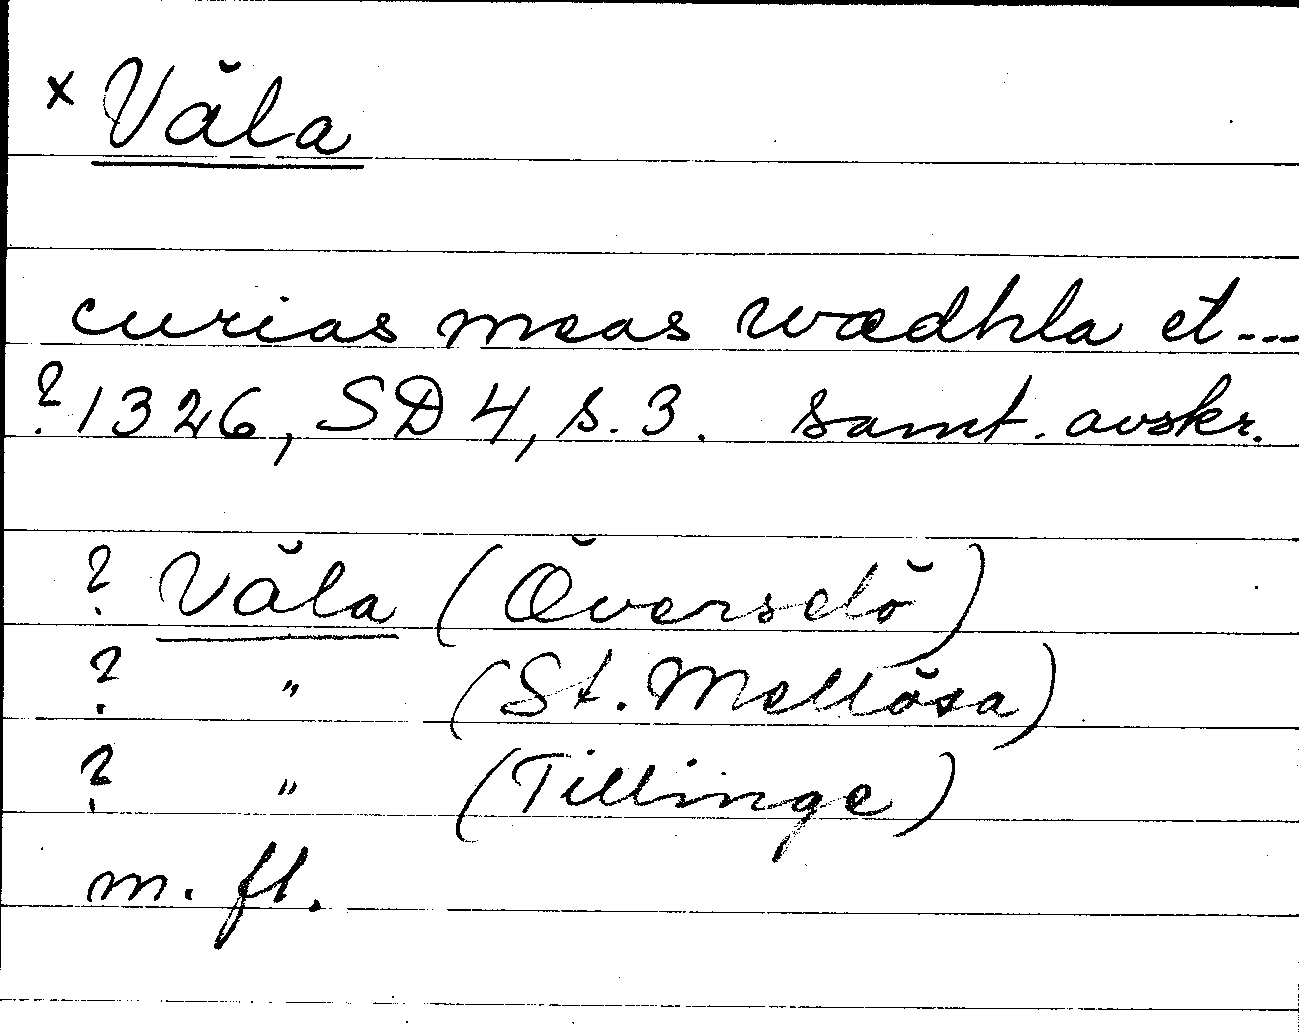 x Väla
curias meas wædhla et---
? 1326, SD 4, s. 3. samt. avskr.
? Väla (Överselö)
? " (St. Mellösa)
? " (Tillinge)
m. fl.